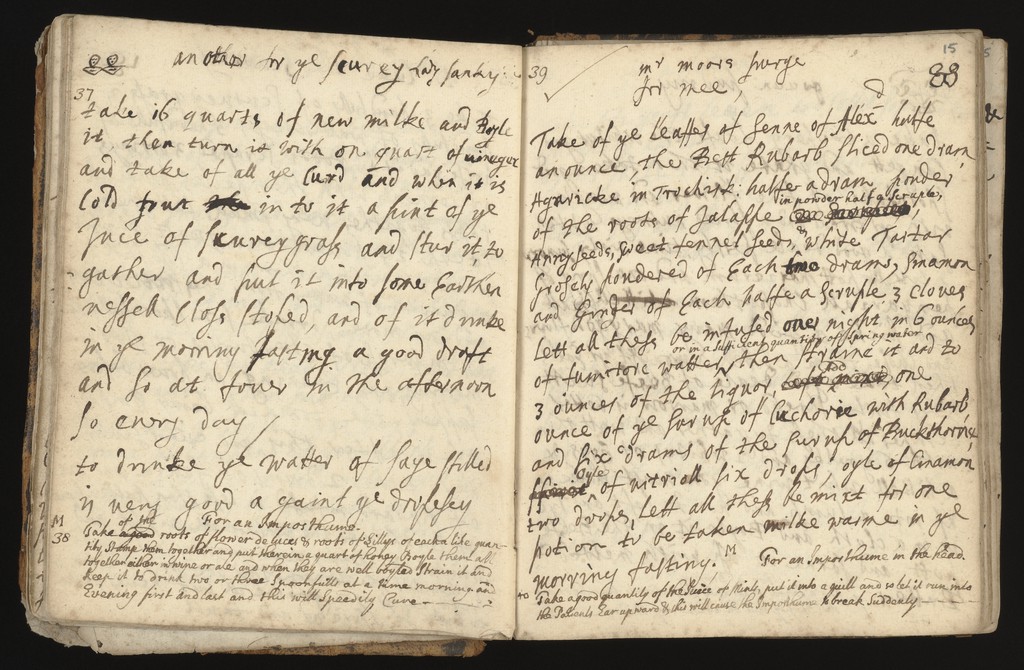 another for ye scurvey Lady Sankey
37
take 16 quarts of new milke and Boyle
it, then turn it with on quart of vinegar
and take of all ye Curd and when it is
Cold in to it a pint of ye
Juce of scurvey grass and stur it to
gather and put it into some Earthen
vessell Closs stoped, and of it drinke
in ye morning fasting a good draft
and so at fouer in the afternoon
so every day
to drinke ye watter of sage stilled
is very good a gainst ye dropesey
M
38
For an Imposthume.
of the
Take roots of flower de luces & roots of Lillys of each a like quan-
tity Stamp them together and put therein a quart of honey Boyle them all
together either in wine or ale and when they are well boyled Strain it and
keep it to drink two or three Spoonfulls at a time morning and
Evening first and last and this will Speedily Cure
15
39
mr moors purge
for mee,
Take of ye leaffes of Senne of Alex halfe
an ounce, the Best Rubarb sliced one dram,
Agaricke in Trochisk: halfe a dram ponder
in powder half a Scruple,
of the roots of Jalappe
Annyseeds, sweet fennel seeds, & white Tartar
Grosely pondered of Each two drams, Sinamon
and Ginger of Each halfe a scruple, 3 cloves
Lett all thess be infused over night in 6 ounces
or in a sufficient quantity off spring water
of fumitore watter, then straine it and to
3 ounces of the liquor Add one
ounce of ye surup of Cuchorie with Rubarb
and six drams of the surup of Buckthorne,
Oyle
of vitriall six drops, oyle of Cinamon
two drops, Lett all thess be mixt for one
potion to be taken milke warme in ye
morning fasting.
M
For an Imposthume in the head.
40
Take a good quantity of the Juice of Mints, put it into a quill and so let it run into
the Patients Ear upward & this will cause the Imposthume to break Suddenly